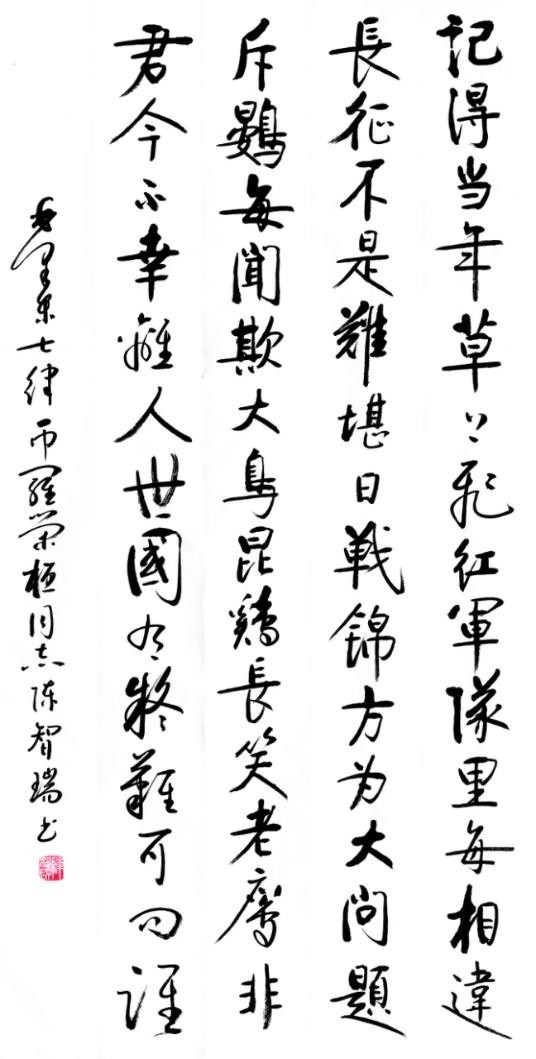 记得当年草〻飛红軍隊里每相違
長征不是難堪日戰錦方为大问題
斥鷃每聞欺大鳥昆鷄長笑老鷹非
君今不幸離人世國有疑難可问誰
毛泽东七律吊羅荣桓同志陈智瑞书